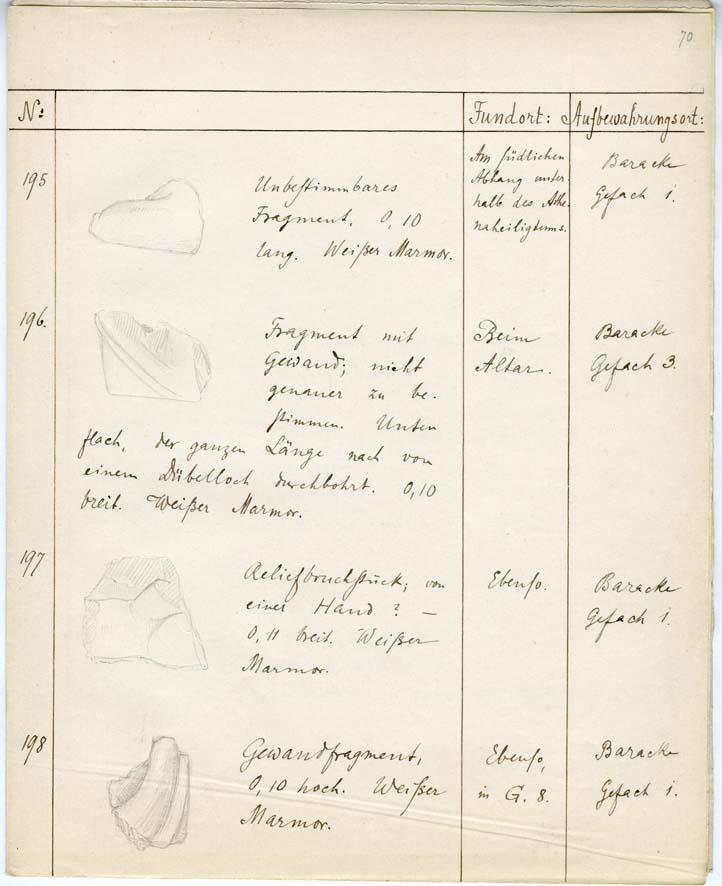 70
No: Fundort: Aufbewahrungsort:
195
Unbestimmbares
Fragment. 0,10
lang. Weißer Marmor.
Am südlichen
Abhang unter-
halb des Athe-
naheiligtums.
Baracke
Gefach 1.
196.
Fragment mit
Gewand; nicht
genauer zu be-
stimmen. Unten
flach, der ganzen Länge nach von
einem Dübelloch durchbohrt. 0,10
breit. Weißer Marmor.
Beim
Altar.
Baracke
Gefach 3.
197
Reliefbruchstück; von
einer Hand? –
0,11 breit. Weißer
Marmor.
Ebenso.
Baracke
Gefach 1.
198
Gewandfragment,
0,10 hoch. Weißer
Marmor.
Ebenso,
in G. 8.
Baracke
Gefach 1.